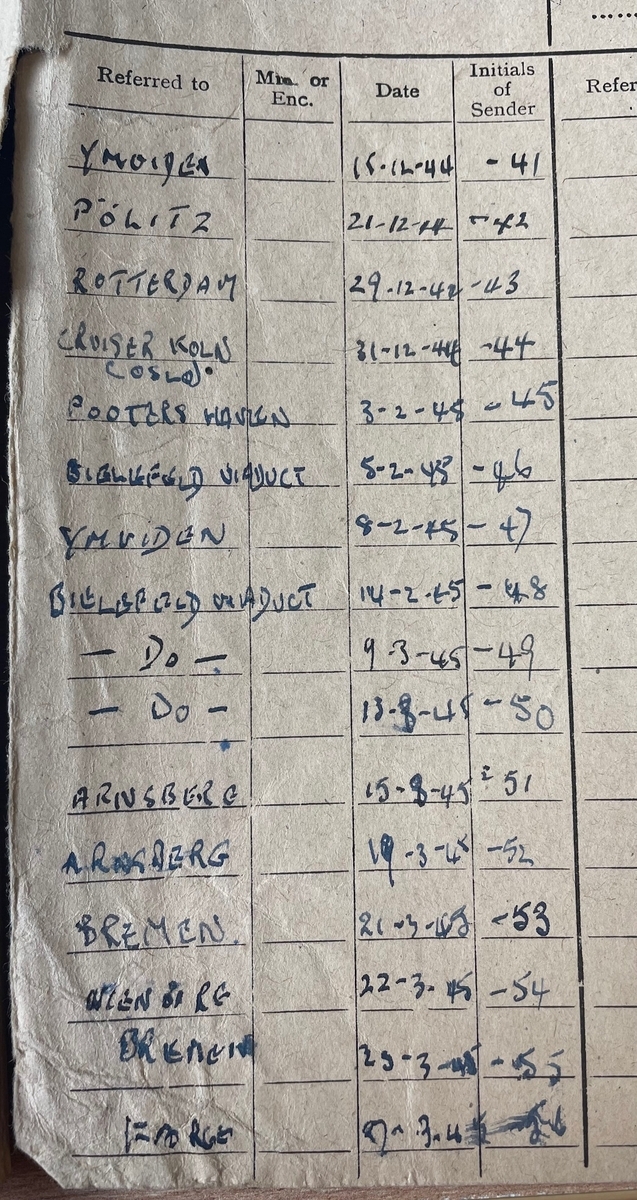 Referred to Min. or Enc. Date Initials of Sender Refer
YMOIDEN 15-12-44 - 41
PÖLITZ 21-12-44 - 42
ROTTERDAM 29-12-42 - 43
CRUISER KOLN 31-12-44 - 44
(OSLO).
POOTERS HAVEN 3-2-45 - 45
BIELEFELD VIADUCT 5-2-45 - 46
YMUIDEN 8-2-45 - 47
BIELEFELD VIADUCT 14-2-45 - 48
— Do — 9-3-45 - 49
— Do — 13-3-45 - 50
ARNSBERG 15-3-45 - 51
ARNSBERG 19-3-45 - 52
BREMEN. 21-3-45 - 53
NIENBURG 22-3-45 - 54
BREMEN 23-3-45 - 55
FARGE